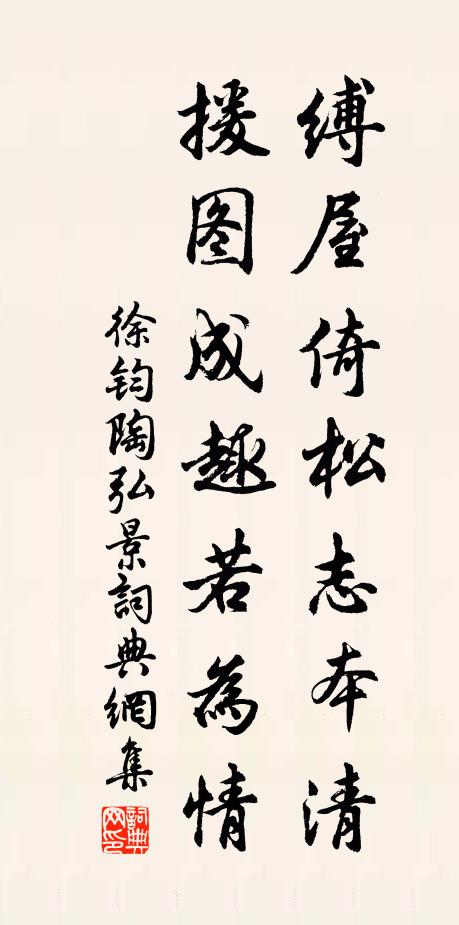 缚屋倚松志本清
援图成趣若為情
徐钧陶弘景詞典網集
詞典网印